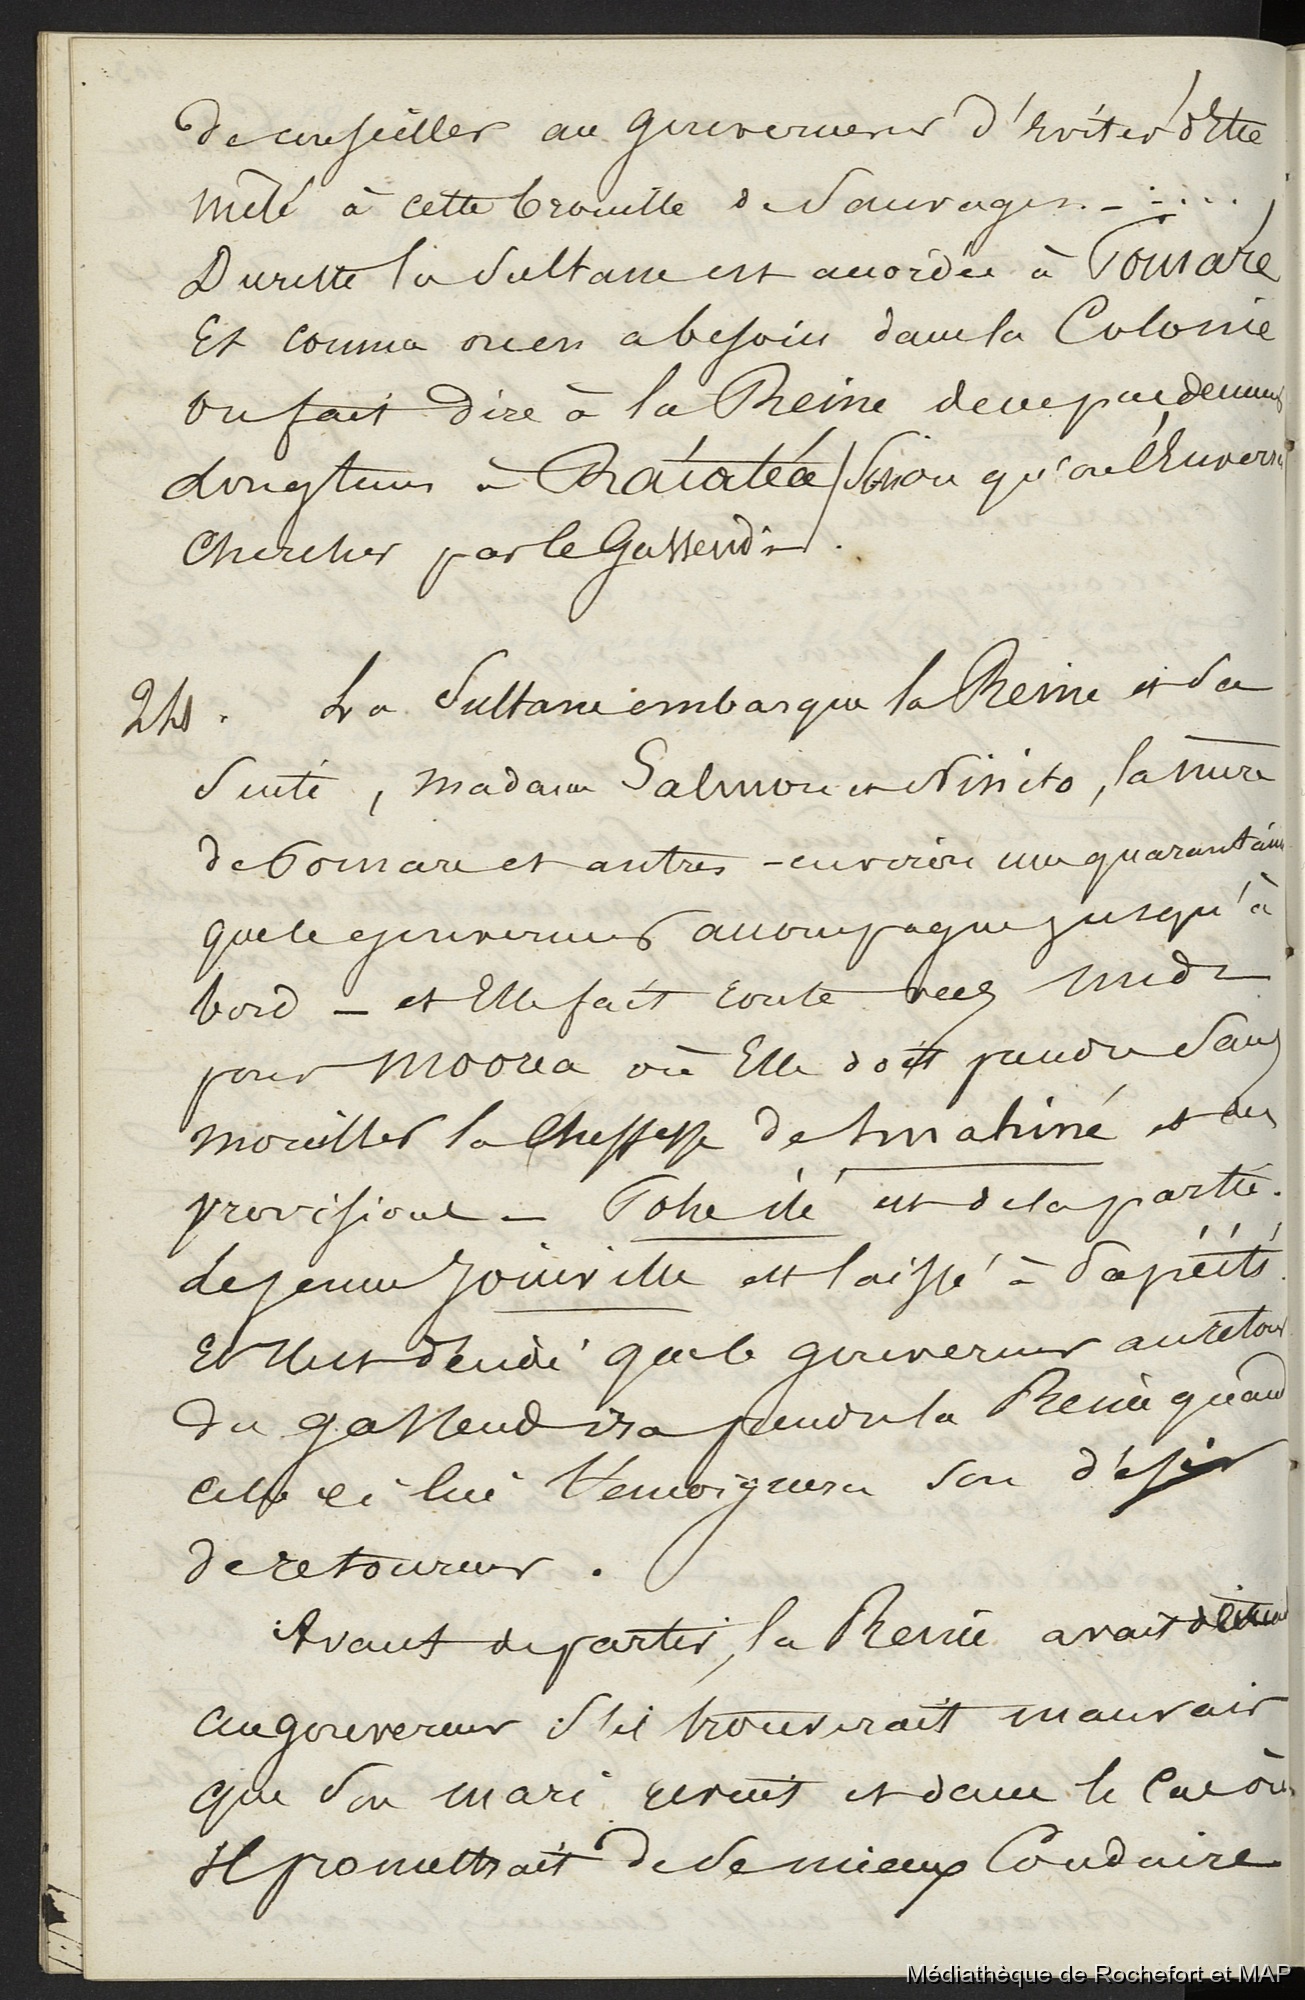 de conseiller au gouverneur d'éviter d'Etre
mêlé à cette brouille de Sauvages - ....
Du reste la Sultane est accordée à Pomaré
Et comme on en a besoin dans la Colonie
on fait dire à la Reine de ne pas demeurer
longtems à Raiatéa, sinon qu'on l'Enverra
Chercher par le Gassendi.
24. La Sultane embarque la Reine et Sa
Suite, madame Salmon et Ninito, la mère
de Pomare et autres - environ une quarantaine
que le gouverneur accompagne jusqu'à
bord - et Elle fait route vers midi
pour Moorea où Elle doit prendre Sans
mouiller la Cheffesse de et des
provisions - est de la partie.
Le jeune Joinville est laissé à Papéiti.
Et il est décidé que le gouverneur au retour
du gassendi ira prendre la Reine quand
celle ci lui témoignera son désir
de retourner.
Avant de partir, la Reine avait
au gouverneur s'il trouverait mauvais
que Son mari revint et dans le Cas où
Il promettrait de Se mieux Conduire
Médiathèque de Rochefort et MAP